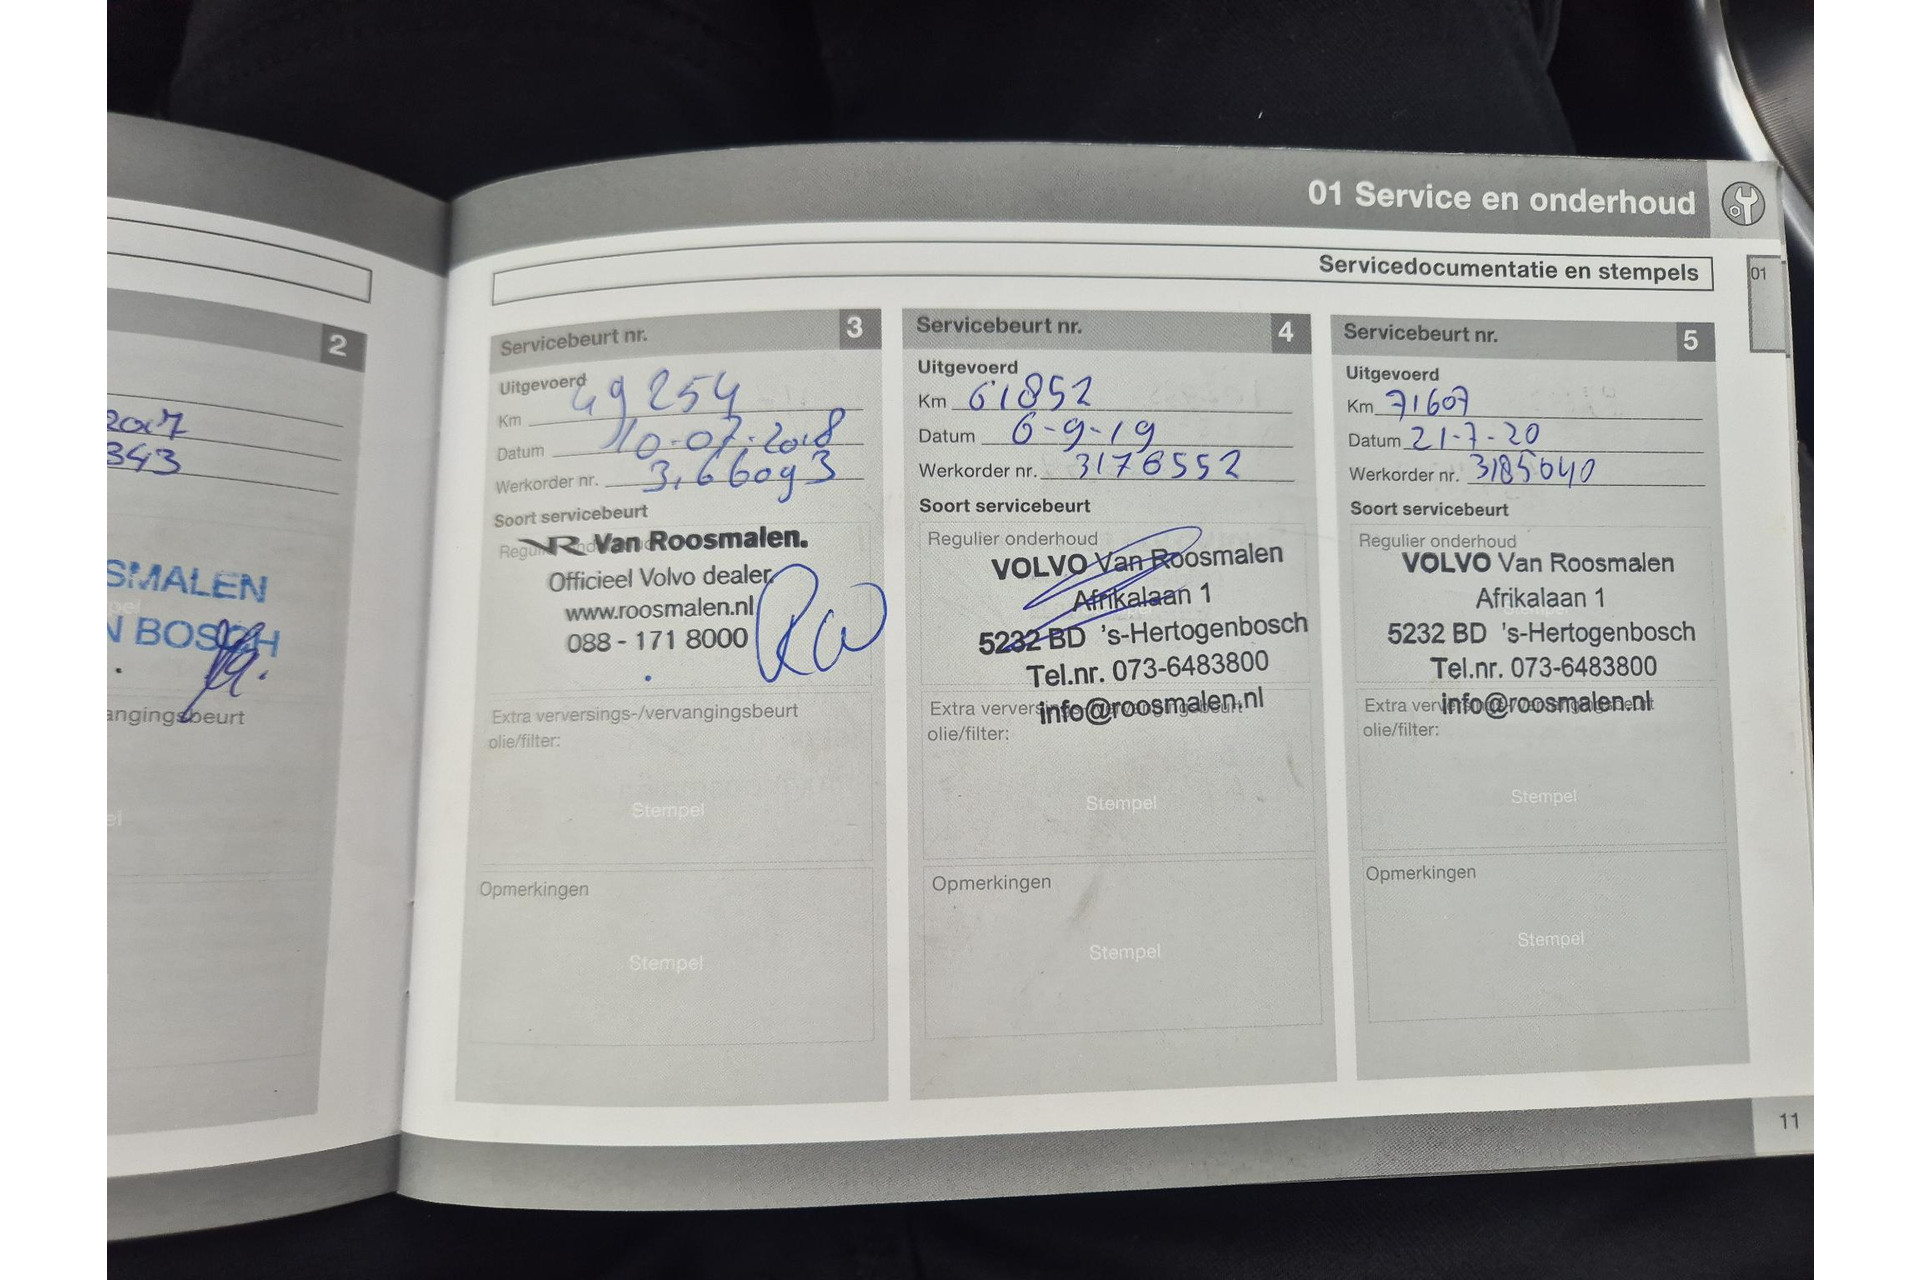 2
2017
343
SMALEN
N BOSCH
angingsbeurt
01 Service en onderhoud
Servicedocumentatie en stempels
01
Servicebeurt nr. 3
Uitgevoerd
Km 49254
Datum 10-07-2018
Werkorder nr. 3,66093
Soort servicebeurt
VR Van Roosmalen.
Officieel Volvo dealer
www.roosmalen.nl
088 - 171 8000
RW
Extra verversings-/vervangingsbeurt
olie/filter:
Stempel
Opmerkingen
Stempel
Servicebeurt nr. 4
Uitgevoerd
Km 61852
Datum 6-9-19
Werkorder nr. 3176552
Soort servicebeurt
Regulier onderhoud
VOLVO Van Roosmalen
Afrikalaan 1
5232 BD 's-Hertogenbosch
Tel.nr. 073-6483800
info@roosmalen.nl
Extra verversings-/vervangingsbeurt
olie/filter:
Stempel
Opmerkingen
Stempel
Servicebeurt nr. 5
Uitgevoerd
Km 71607
Datum 21-7-20
Werkorder nr. 3185040
Soort servicebeurt
Regulier onderhoud
VOLVO Van Roosmalen
Afrikalaan 1
5232 BD 's-Hertogenbosch
Tel.nr. 073-6483800
info@roosmalen.nl
Extra verversings-/vervangingsbeurt
olie/filter:
Stempel
Opmerkingen
Stempel
11